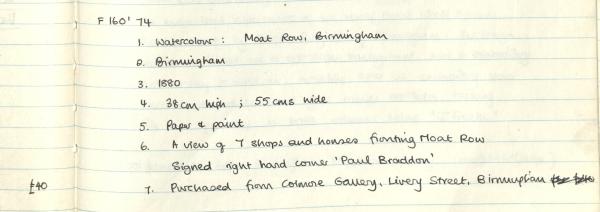 F 160' 74
1. Watercolour : Moat Row, Birmingham
2. Birmingham
3. 1880
4. 38cm high ; 55cms wide
5. Paper & paint
6. A view of 7 shops and houses fronting Moat Row
Signed right hand corner 'Paul Braddon'
£40 7. Purchased from Colmore Gallery, Livery Street, Birmingham